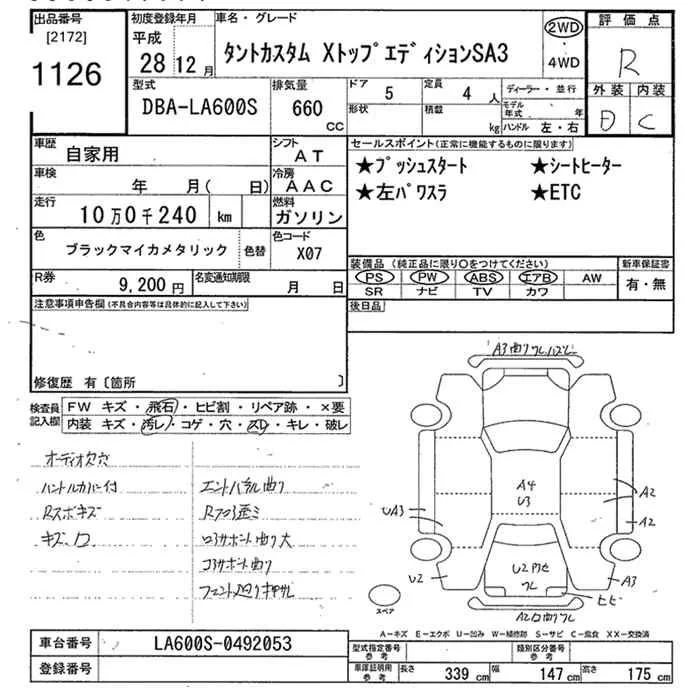 出品番号
[2172]
1126
初度登録年月
平成
28 12 月
車名・グレード
タントカスタム Xトップエディション SA3
2WD
・
4WD
評価点
R
外装 内装
D C
型式
DBA-LA600S
排気量
660
cc
ドア 5
定員 4 人
形状
積載 kg
ディーラー・並行
モデル年式 年
ハンドル 左・右
車歴 自家用
シフト AT
車検 年 月( 日)
冷房 AAC
走行 10万0千240 km
燃料 ガソリン
色 ブラックマイカメタリック 色替
色コード X07
R券 9,200 円
名変通知期限 月 日
セールスポイント(正常に機能するものに限ります)
★プッシュスタート ★シートヒーター
★左パワスラ ★ETC
装備品(純正品に限り○をつけてください)
PS PW ABS エアB AW
SR ナビ TV カワ
新車保証書
有・無
後日品
注意事項申告欄(不具合内容等は具体的に記入して下さい)
修復歴 有〔箇所 〕
検査員記入欄
FW キズ・飛石・ヒビ割・リペア跡・×要
内装 キズ・汚レ・コゲ・穴・スレ・キレ・破レ
オーディオ欠穴
ハンドルカバー付
エンドパネル曲り
Rスポキズ
キズ、凹
コアサポート曲り
A3
A4
U3
A2
UA3
A2
U2
A3
ヒビ
スペア
A-キズ E-エクボ U-凹み W-補修跡 S-サビ C-腐食 XX-交換済
車台番号 LA600S-0492053
登録番号
型式指定番号
参考
類別区分番号
参考
車庫証明用
参考
長さ 339 cm 幅 147 cm 高さ 175 cm